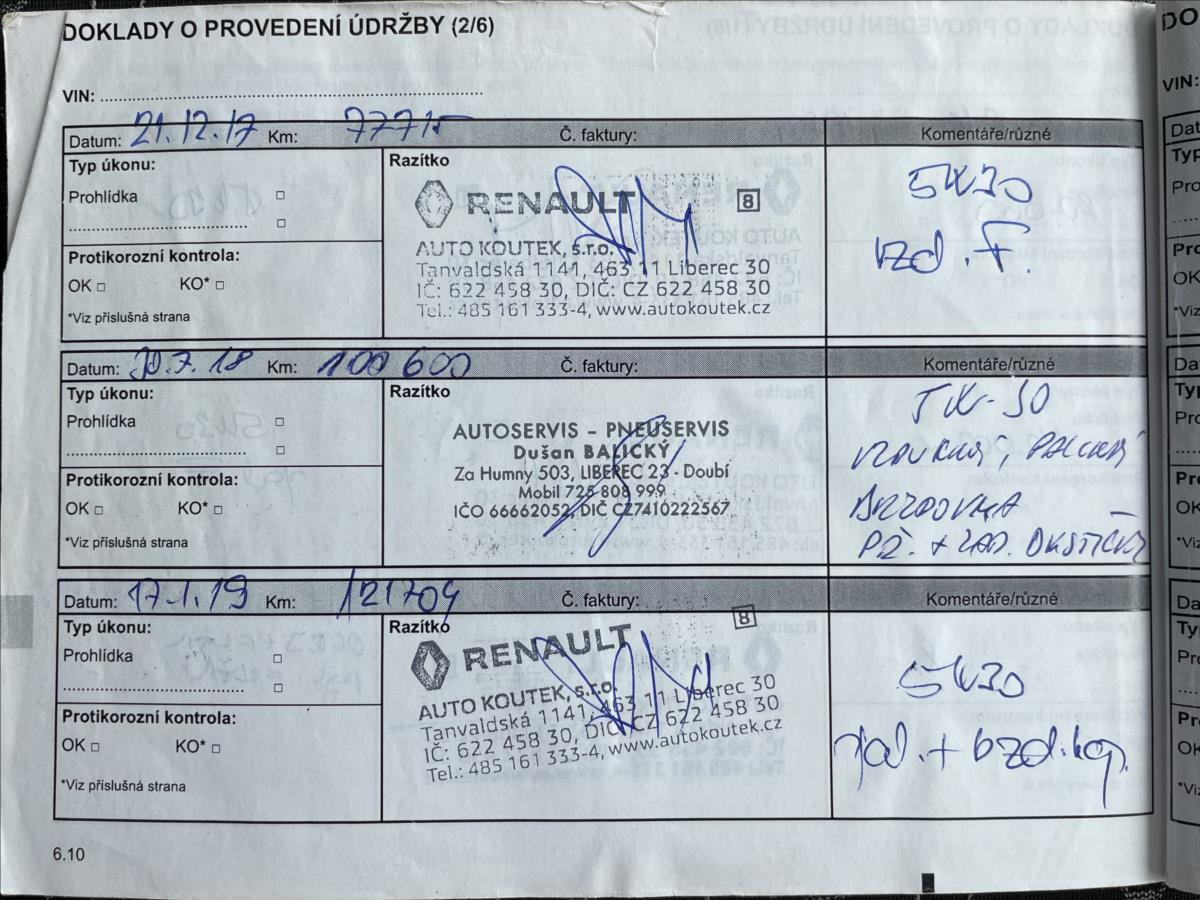 DOKLADY O PROVEDENÍ ÚDRŽBY (2/6)
VIN:
Datum: 21.12.17 Km: 77715 Č. faktury: Komentáře/různé
Typ úkonu:
Prohlídka
Protikorozní kontrola:
OK □ KO* □
*Viz příslušná strana
Razítko
RENAULT 8
AUTO KOUTEK, s.r.o.
Tanvaldská 1141, 463 11 Liberec 30
IČ: 622 458 30, DIČ: CZ 622 458 30
Tel.: 485 161 333-4, www.autokoutek.cz
5W30
vzd. F.
Datum: 30.7.18 Km: 100 600 Č. faktury: Komentáře/různé
Typ úkonu:
Prohlídka
Protikorozní kontrola:
OK □ KO* □
*Viz příslušná strana
Razítko
AUTOSERVIS - PNEUSERVIS
Dušan BALICKÝ
Za Humny 503, LIBEREC 23 - Doubí
Mobil 725 808 999
IČO 66662052, DIČ CZ7410222567
5W-30
Datum: 17.1.19 Km: 121704 Č. faktury: Komentáře/různé
Typ úkonu:
Prohlídka
Protikorozní kontrola:
OK □ KO* □
*Viz příslušná strana
Razítko
RENAULT 8
AUTO KOUTEK, s.r.o.
Tanvaldská 1141, 463 11 Liberec 30
IČ: 622 458 30, DIČ: CZ 622 458 30
Tel.: 485 161 333-4, www.autokoutek.cz
5W30
pal. + vzd.
6.10